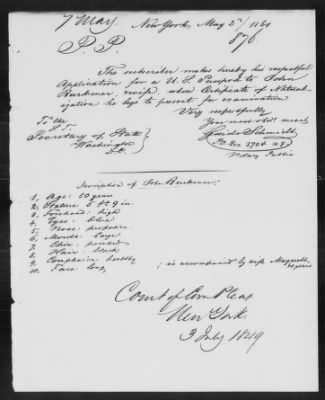 7 May.
New York, May 2nd/1860
876
P. P.
The subscriber makes hereby his respectful
Application for a U. S. Passport to John
Burkmer, wife, whose Certificate of Natural-
ization he begs to present for examination
Very respectfully
Your most obdt servt
To the
Guido Schmidt
Secretary of State
P.O. Box 3704 N.Y.
Washington
D.C.
Notary Public
Description of John Burkmer.
1, Age: 50 years
2, Stature: 5 ft 9 in.
3, Forehead: high
4, Eyes: blue
5, Nose: proport.
6, Mouth: large
7, Chin: pointed
8, Hair: black
9, Complexion: healthy
10, Face long,
; is accompanied by wife
years
Court of Com Pleas
New York.
3 July 1849